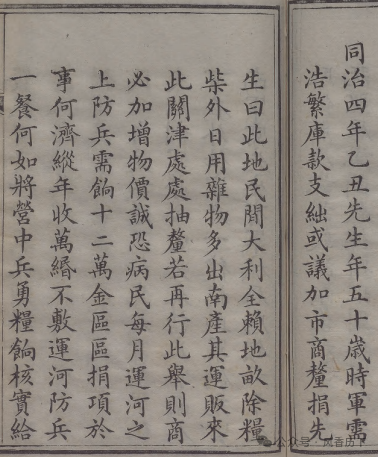 同治四年乙丑先生年五十歲時軍需
浩繁庫款支絀或議加市商釐捐先
生曰此地民間大利全賴地畝除糧
柴外日用雜物多出南產其運販來
此關津處處抽釐若再行此舉則商
必加增物價誠恐病民每月運河之
上防兵需餉十二萬金區區捐項於
事何濟縱年收萬緡不敷運河防兵
一餐何如將營中兵勇糧餉核實給
公众号·风香历下